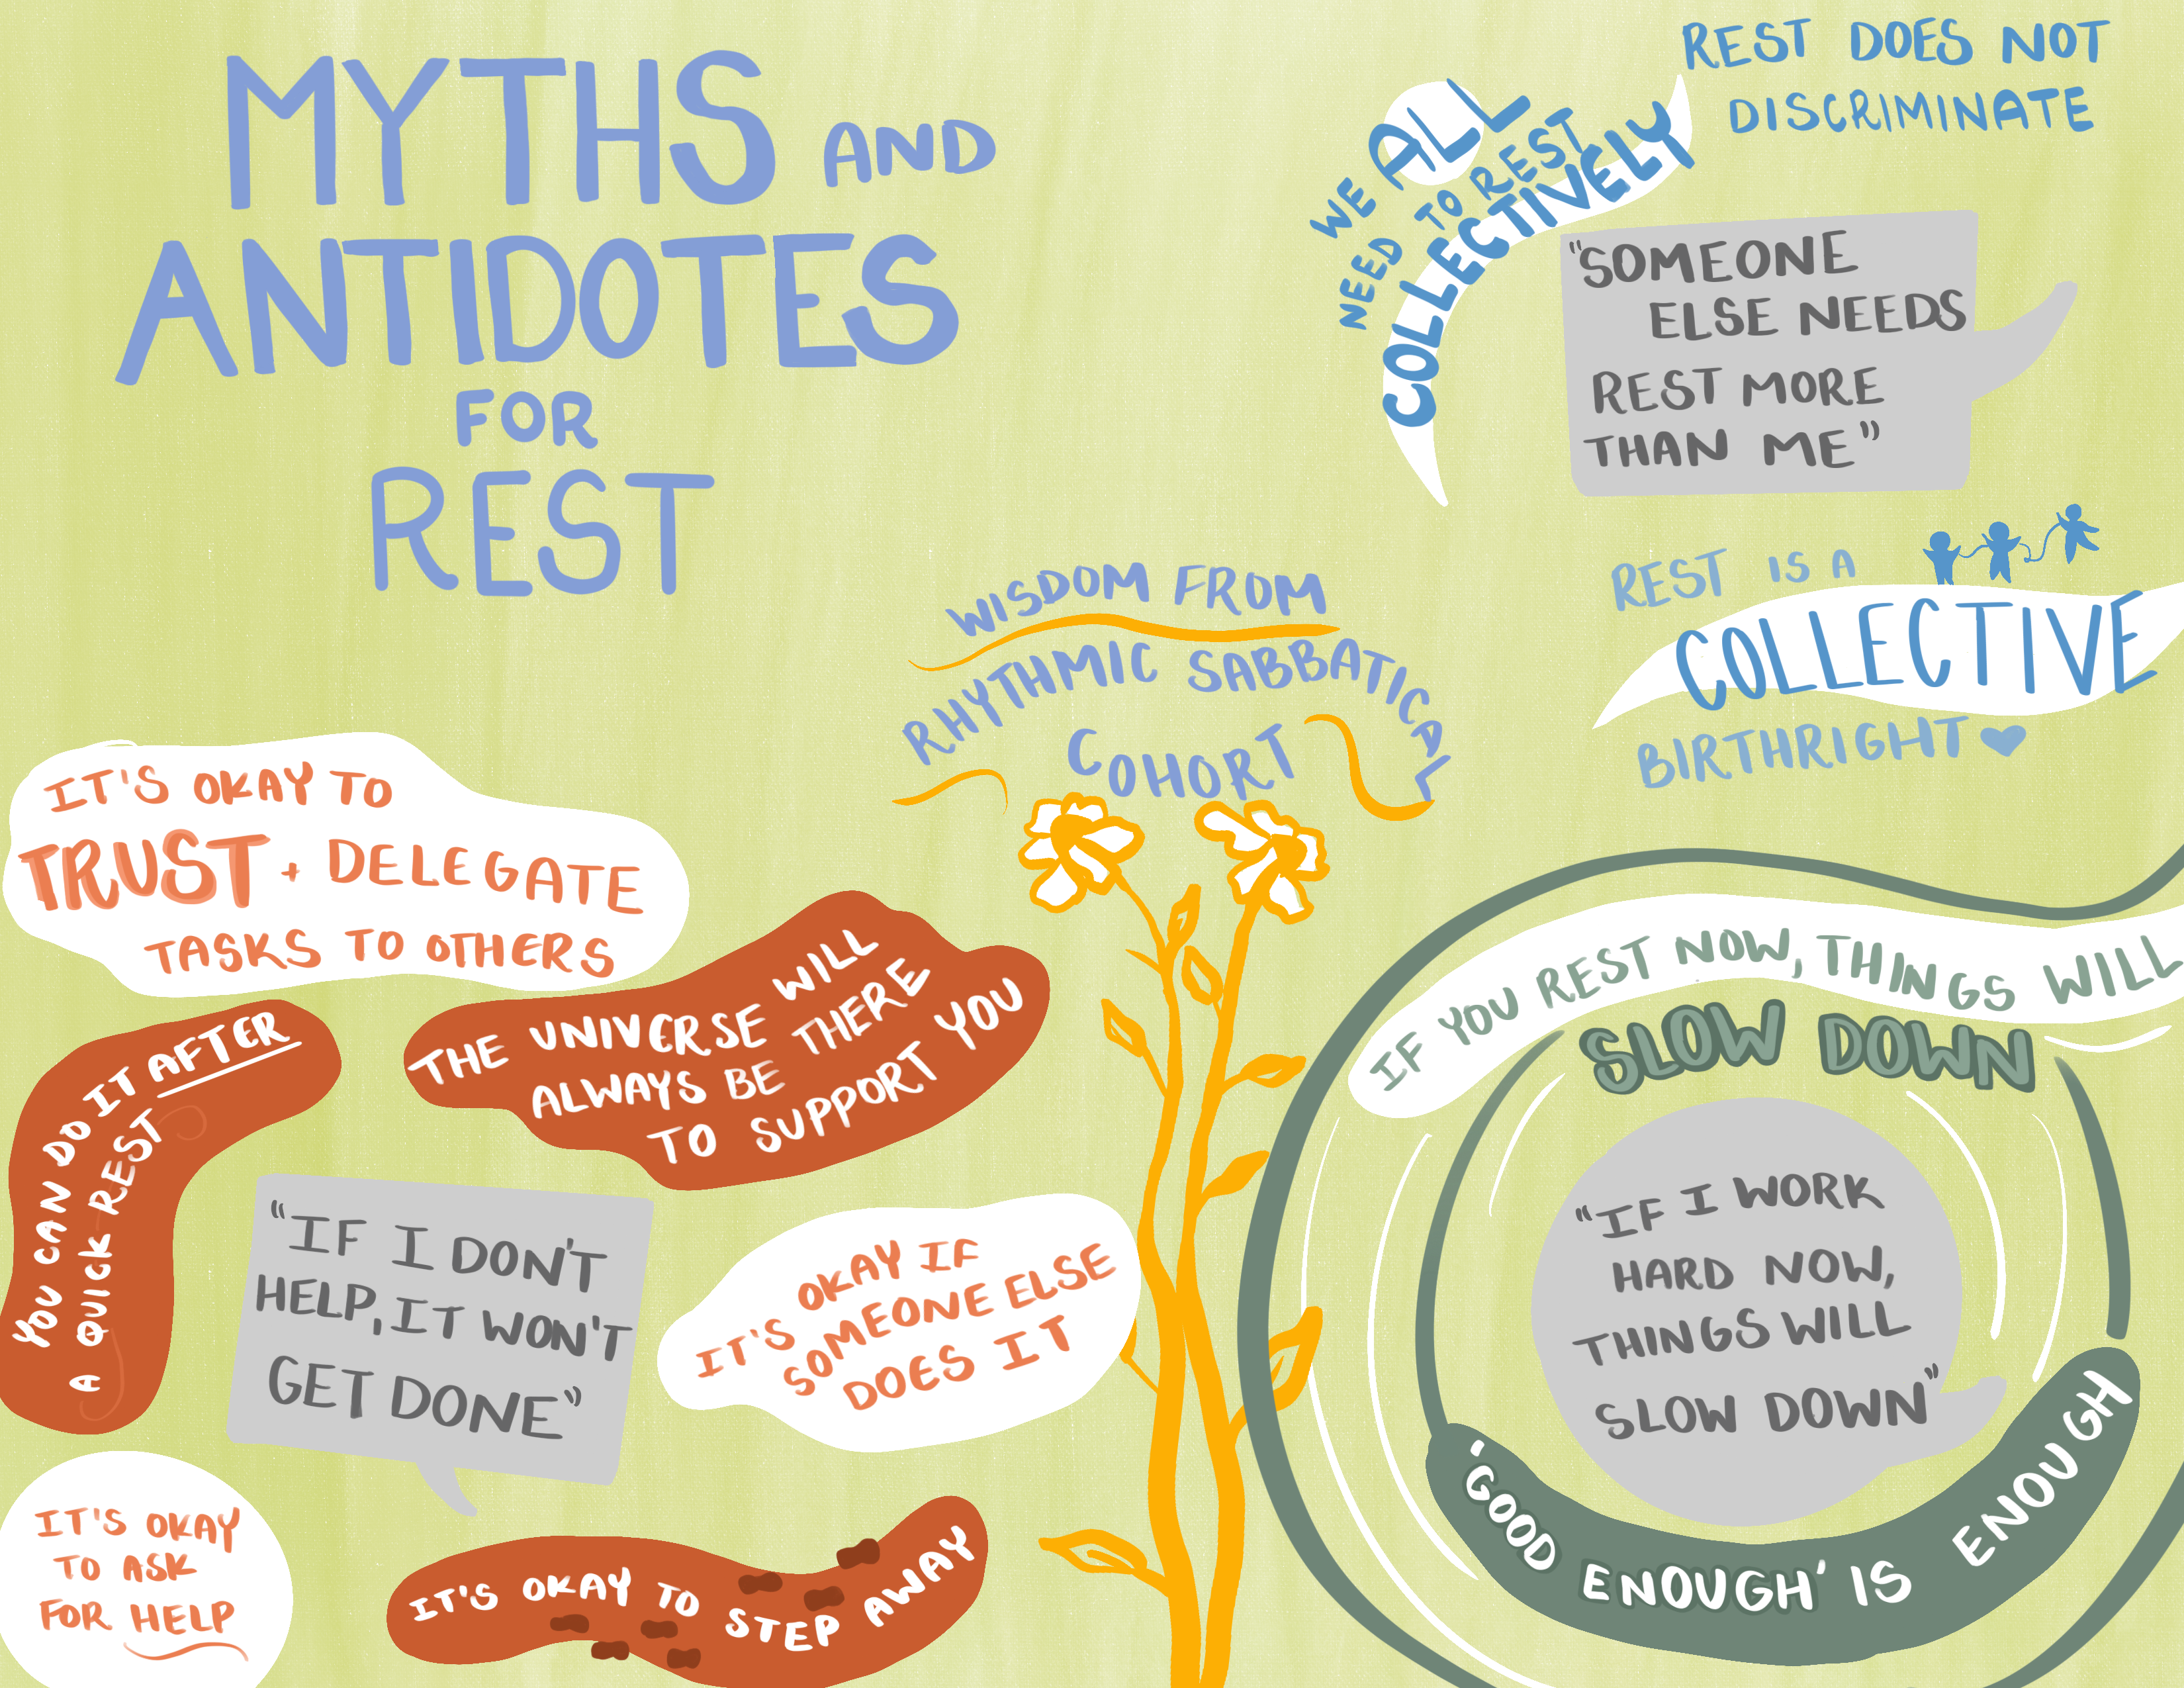 MYTHS AND
ANTIDOTES
FOR
REST
WISDOM FROM
RHYTHMIC SABBATICAL
COHORT
REST DOES NOT
DISCRIMINATE
WE ALL
NEED TO REST
COLLECTIVELY
"SOMEONE
ELSE NEEDS
REST MORE
THAN ME"
REST IS A
COLLECTIVE
BIRTHRIGHT
IT'S OKAY TO
TRUST + DELEGATE
TASKS TO OTHERS
THE UNIVERSE WILL
ALWAYS BE THERE
TO SUPPORT YOU
YOU CAN DO IT AFTER
A QUICK REST
"IF I DON'T
HELP, IT WON'T
GET DONE"
OKAY IF
IT'S SOMEONE ELSE
DOES IT
IT'S OKAY
TO ASK
FOR HELP
IT'S OKAY TO STEP AWAY
IF YOU REST NOW, THINGS WILL
SLOW DOWN
"IF I WORK
HARD NOW,
THINGS WILL
SLOW DOWN"
'GOOD ENOUGH' IS ENOUGH